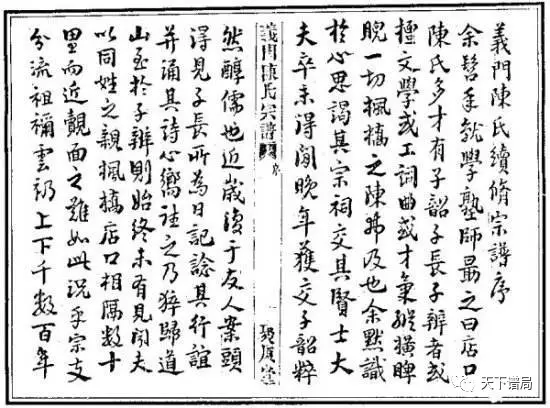 義門陳氏續脩宗譜序
余髫年就學塾師勗之曰店口
陳氏多才有子韶子長子辨者或
擅文學或工詞曲或才氣縱橫睥
睨一切楓橋之陳弗及也余默識
於心思謁其宗祠交其賢士大
夫卒未得間晚年獲交子韶粹
義門陳氏宗譜
序
一
然醇儒也近歲復于友人案頭
得見子長所為日記諗其行誼
并誦其詩心嚮往之乃猝歸道
山至於子辨則始終未有見聞夫
以同姓之親楓橋店口相隔數十
里而近覿面之難如此況乎宗支
分流祖禰雲礽上下千數百年
天下谱局